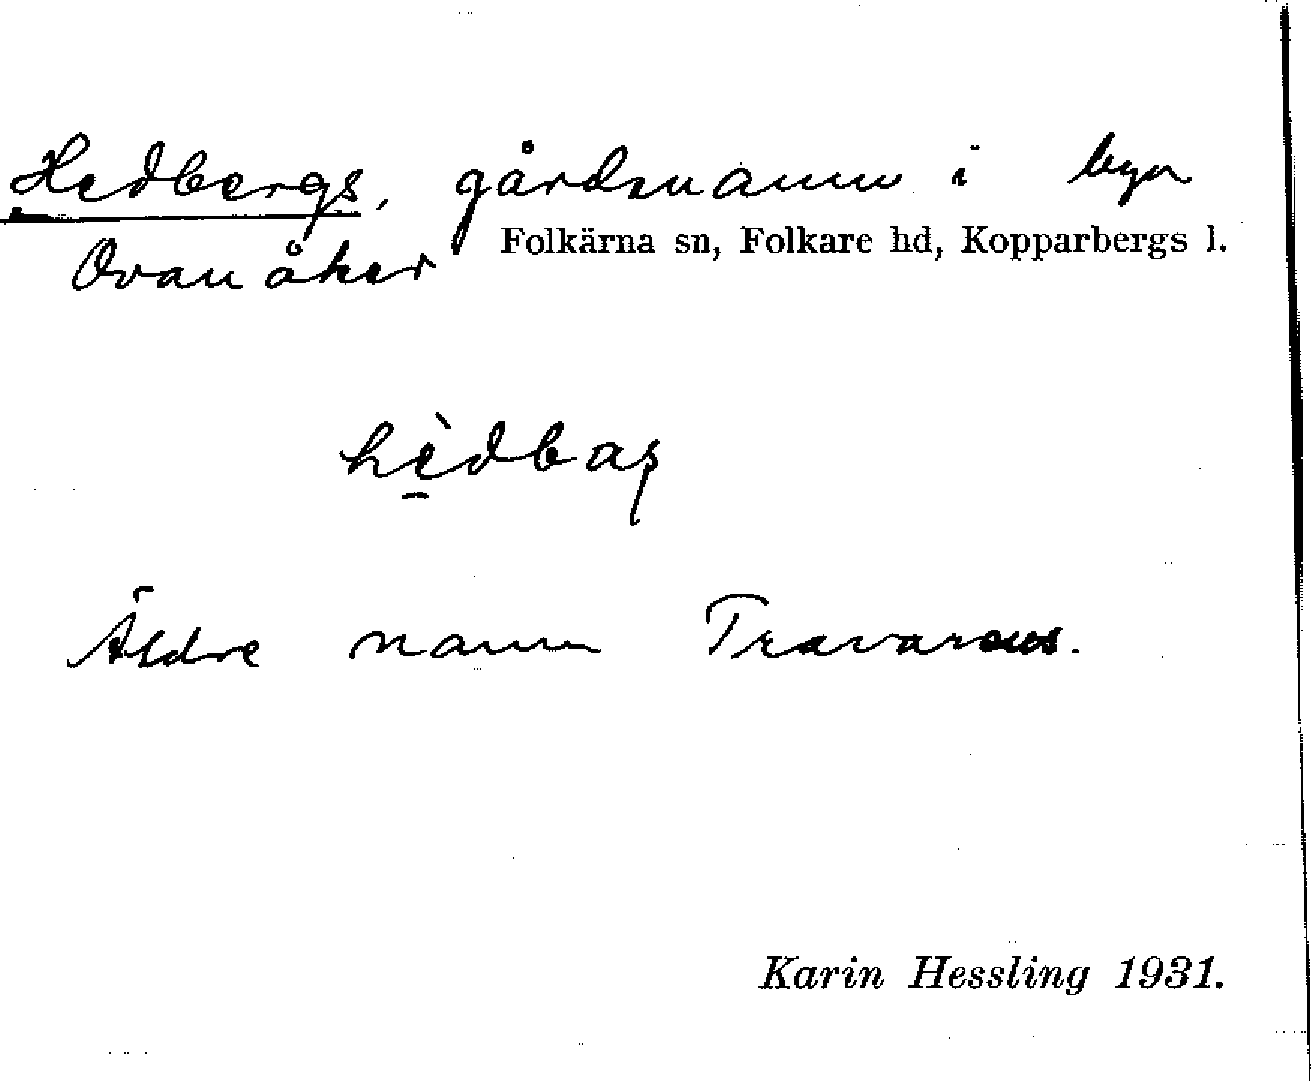 Hedbergs, gårdsnamn i byn
Ovanåker Folkärna sn, Folkare hd, Kopparbergs l.
hèdbaş
Äldre namn
Karin Hessling 1931.